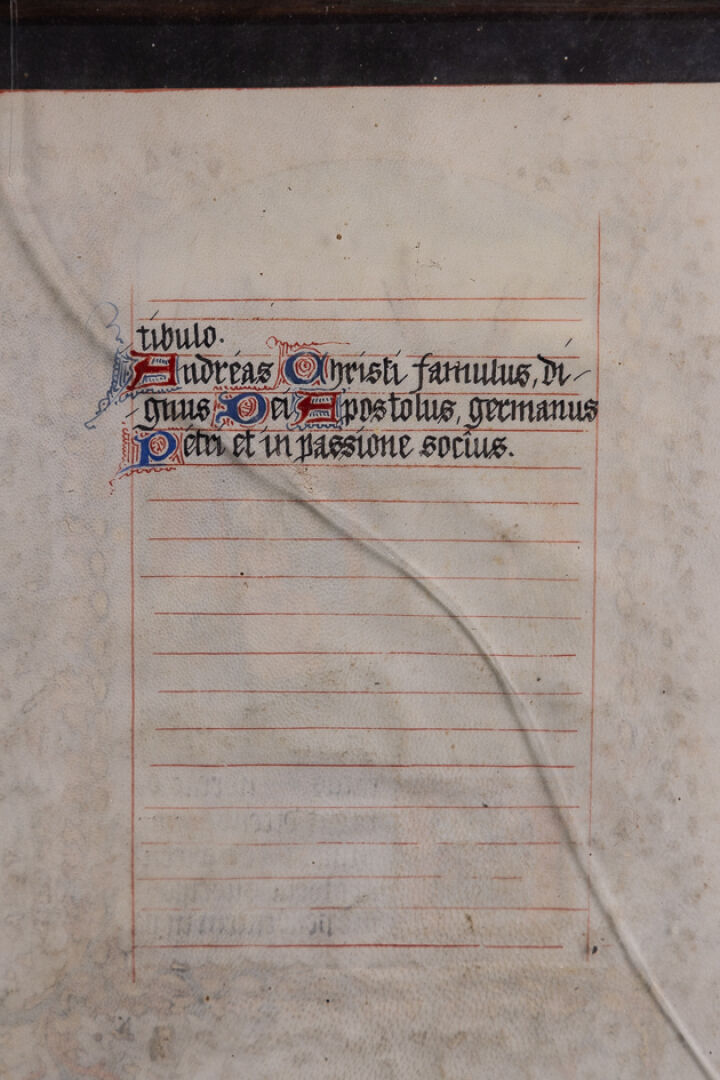 tibulo.
Andréas Christi famulus, di-
-gnus Dei Apostolus, germanus
Pétri et in passióne sócius.